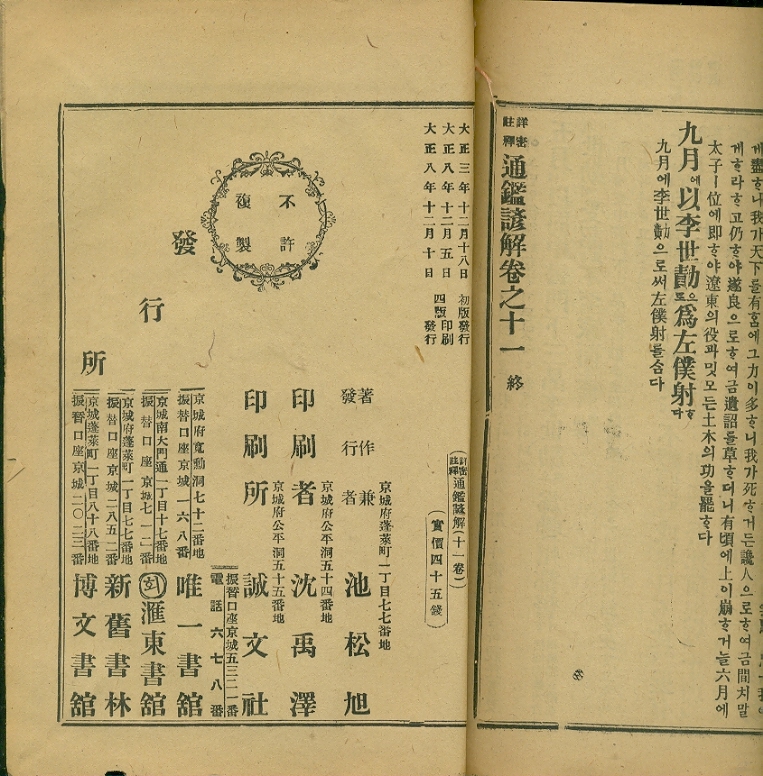 게盡ᄒᆞ나我가天下를有ᄒᆞᆷ에그力이多ᄒᆞ니我가死ᄒᆞ거든讒人으로ᄒᆞ여금間치말
게ᄒᆞ라ᄒᆞ고仍ᄒᆞ야遂良으로ᄒᆞ여금遺詔를草ᄒᆞ더니有頃에上이崩ᄒᆞ거늘六月에
太子ㅣ位에即ᄒᆞ야遼東의役과밋모든土木의功을罷ᄒᆞ다
九月에以李世勣으로爲左僕射ᄒᆞ다
九月에李世勣으로써左僕射를合다
詳密註釋通鑑諺解卷之十一 終
大正三年十二月十八日 初版發行
大正八年十二月五日 四版印刷
大正八年十二月十日 發行
不許
複製
詳密註釋通鑑諺解(十一卷)
(實價四十五錢)
京城府蓬萊町一丁目七七番地
著作兼發行者 池松旭
京城府公平洞五十四番地
印刷者 沈禹澤
京城府公平洞五十五番地
印刷所 誠文社
振替口座京城五三二一番
電話六七八番
發行所
京城府寬勳洞七十二番地
振替口座京城一六八番
唯一書舘
京城南大門通一丁目十七番地
振替口座京城七一二番
회 滙東書舘
京城府蓬萊町一丁目七七番地
振替口座京城二八五二番
新舊書林
京城蓬萊町一丁目八十八番地
振替口座京城二〇二三番
博文書舘